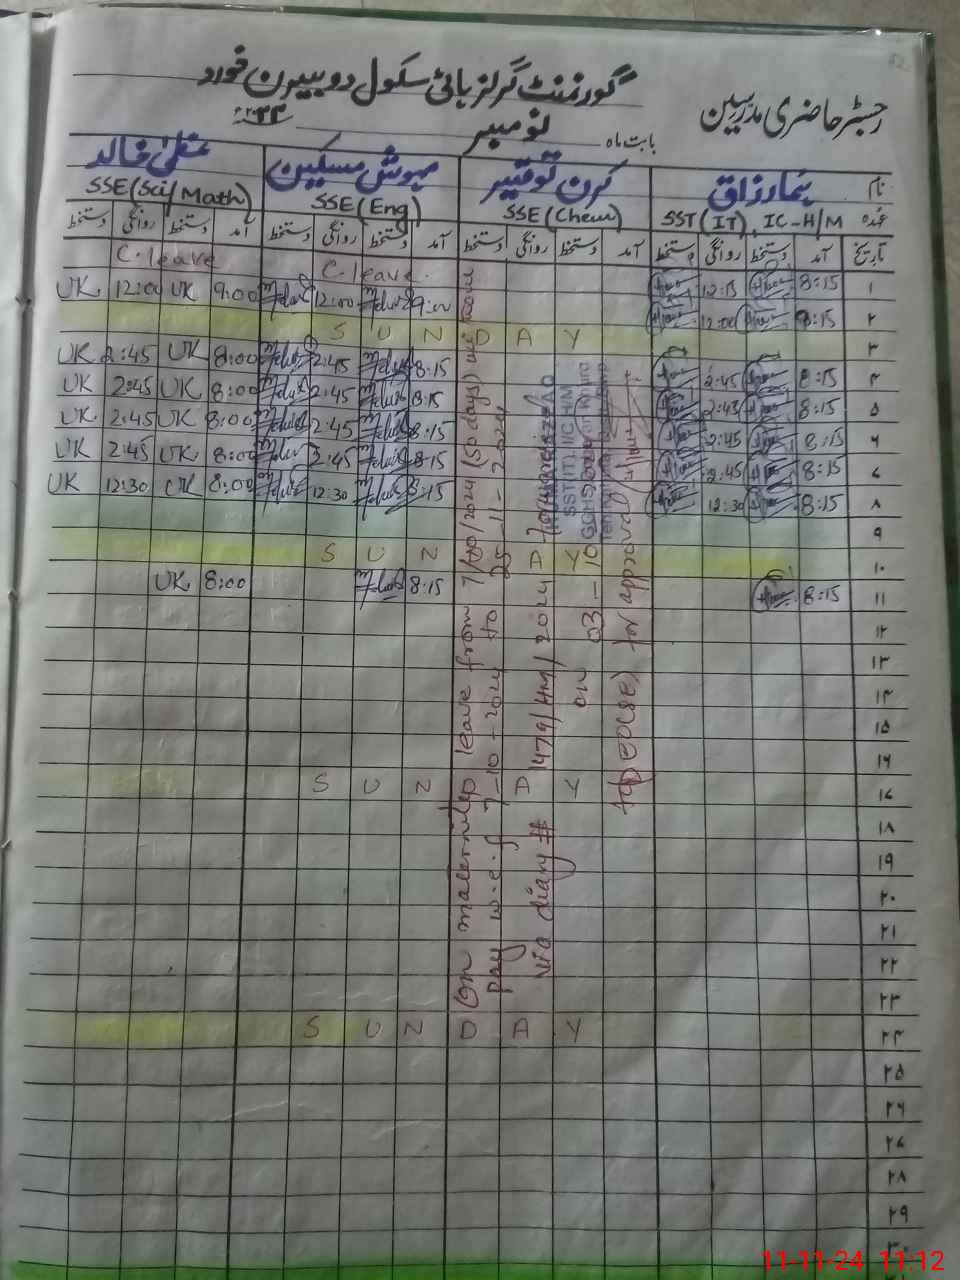 رجسٹر حاضری مدرسین
گورنمنٹ گرلز ہائی سکول دوبیرن خورد
بابت ماہ نومبر ۲۰۲۴ء
نام ہما رزاق کرن توقیر مہوش مسکین عظمیٰ خالد
عہدہ SST (IT), IC-H/M SSE (Chem) SSE (Eng) SSE (Sci/Math)
تاریخ آمد دستخط روانگی دستخط آمد دستخط روانگی دستخط آمد دستخط روانگی دستخط آمد دستخط روانگی دستخط
۱ 8:15 12:15 C. leave. C. leave
۲ 8:15 12:00 9:00 12:00 9:00 UK 12:00 UK
۳ S U N D A Y
۴ 8:15 2:45 8:15 2:45 8:00 UK 2:45 UK
۵ 8:15 2:45 8:15 2:45 8:00 UK 2:45 UK
۶ 8:15 2:45 8:15 2:45 8:00 UK 2:45 UK
۷ 8:15 2:45 8:15 2:45 8:00 UK 2:45 UK
۸ 8:15 12:30 8:15 12:30 8:00 UK 12:30 UK
۹
۱۰ S U N D A Y
۱۱ 8:15 8:15 8:00 UK
۱۲
۱۳
۱۴
۱۵
۱۶
۱۷ S U N D A Y
۱۸
۱۹
۲۰
۲۱
۲۲
۲۳
۲۴ S U N D A Y
۲۵
۲۶
۲۷
۲۸
۲۹
۳۰
On maternity leave from 7/10/2024 (50 days)
pay w.e.f 7-10-2024 to 25-11-2024
via diary # 1479/HM/2024
on 03-10
to DEO (SE) for approval
SST(IT), I/C H/M
11-11-24 11:12